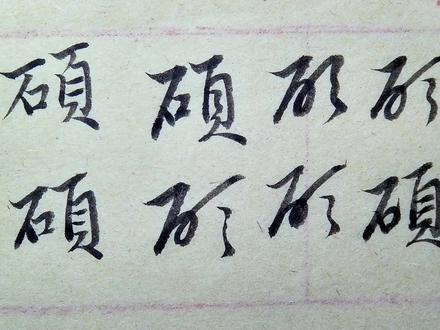 碩碩碩碩
碩碩碩碩